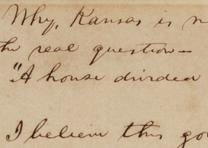 Why, Kansas is n
he real question—
"A house divided
I believe this gov